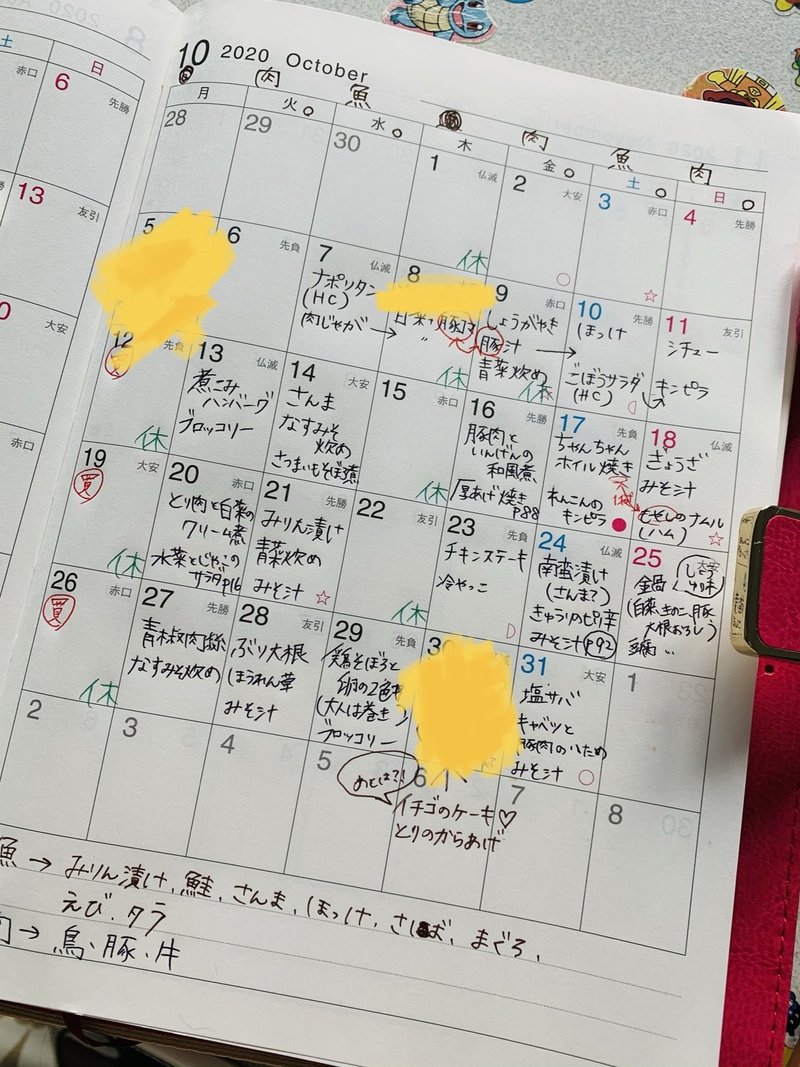 10 2020 October
肉 魚 肉 魚 肉
土 日
月 火 水 木 金 土 日
赤口 6 先勝
28 29 30 1 仏滅 2 大安 3 赤口 4 先勝
休
13 友引
5 6 先負 7 仏滅 8 9 赤口 10 先勝 11 友引
ナポリタン
(HC)
肉じゃが→
休
しょうがやき
豚汁→
青菜炒め
休
ほっけ
ごぼうサラダ
(HC)
シチュー
キンピラ
大安
12 先負 13 仏滅 14 大安 15 赤口 16 先勝 17 先負 18 仏滅
買
休
煮こみ
ハンバーグ
ブロッコリー
さんま
なすみそ
炒め
さつまいもそぼろ煮
休
豚肉と
いんげんの
和風煮
厚あげ焼き
P88
ちゃんちゃん
ホイル焼き
れんこんの
キンピラ
ぎょうざ
みそ汁
もやしのナムル
(ハム)
赤口
19 大安 20 赤口 21 先勝 22 友引 23 先負 24 仏滅 25 大安
買
休
とり肉と白菜の
クリーム煮
水菜とじゃこの
サラダP16
みりん漬け
青菜炒め
みそ汁
休
チキンステーキ
冷やっこ
南蛮漬け
(さんまで)
きゅうりのピリ辛
みそ汁 P92
鍋
(白菜、きのこ、豚
大根おろし)
26 赤口 27 先勝 28 友引 29 先負 30 31 大安 1
買
休
青椒肉絲
なすみそ炒め
ぶり大根
ほうれん草
みそ汁
鶏そぼろと
卵の2色丼
(大人は巻き
ブロッコリー
塩サバ
キャベツと
豚肉のいため
みそ汁
2 3 4 5 6 7 8
あとは?!
イチゴのケーキ♡
とりのからあげ
魚→みりん漬け、鮭、さんま、ほっけ、さば、まぐろ、
えび、タラ
肉→鳥、豚、牛